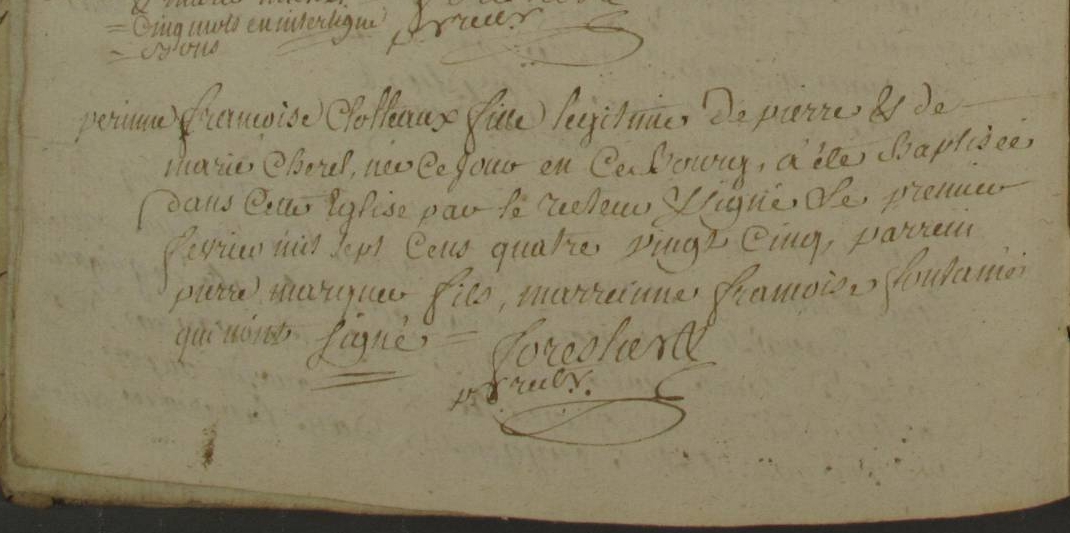 = Cinq mots en interligne
perinne françoise Clotteaux fille legitime de pierre & de
marie Cherel, née Ce jour en Ce Bourg, a été Baptisée
dans Cette Eglise par le recteur Soussigné Le premier
fevrier mil sept Cens quatre vingt Cinq, parrein
pierre marquer fils, marreinne françoise fontaine
qui n'ont signé =
Forestier